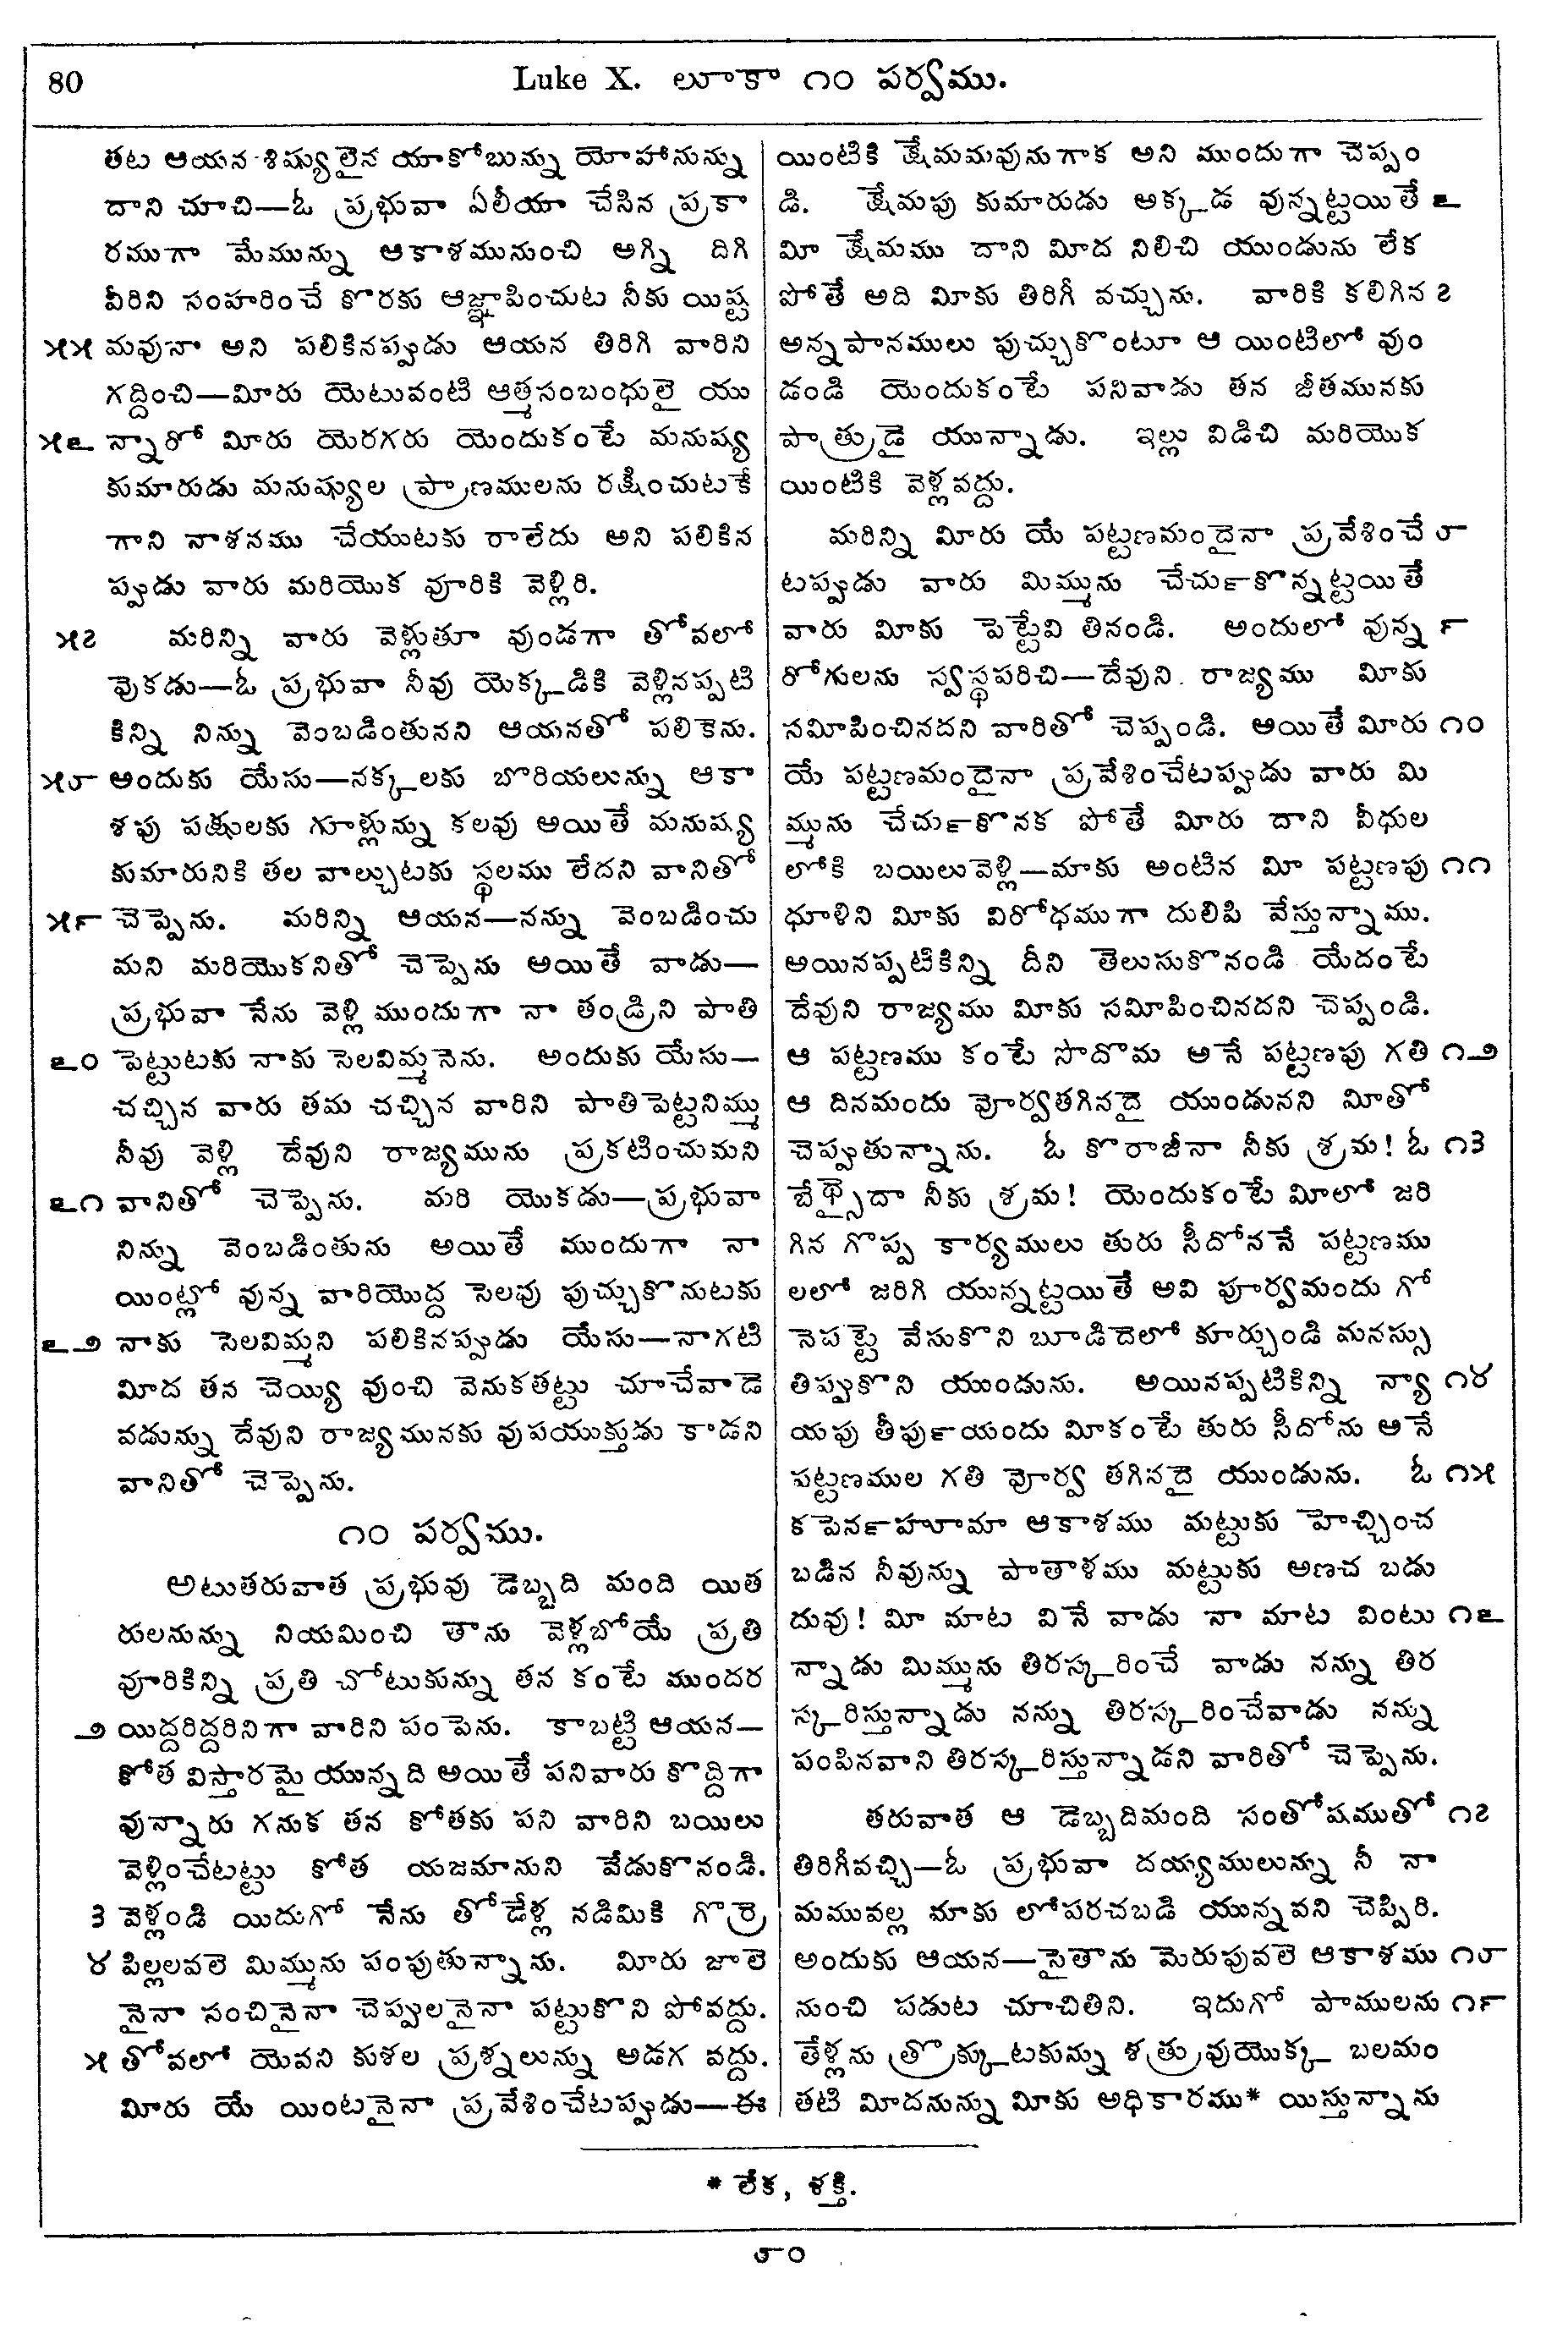 80
Luke X. లూకా ౧౦ పర్వము.
తట ఆయన శిష్యులైన యాకోబున్ను యోహానున్ను
దాని చూచి—ఓ ప్రభువా ఏలీయా చేసిన ప్రకా
రముగా మేమున్ను ఆకాళమునుంచి అగ్ని దిగి
వీరిని సంహరించే కొరకు ఆజ్ఞాపించుట నీకు యిష్ట
౫౫ మవునా అని పలికినప్పుడు ఆయన తిరిగి వారిని
గద్దించి—మీరు యెటువంటి ఆత్మసంబంధులై యు
౫౬ న్నారో మీరు యెరగరు యెందుకంటే మనుష్య
కుమారుడు మనుష్యుల ప్రాణములను రక్షించుటకే
గాని నాళనము చేయుటకు రాలేదు అని పలికిన
ప్పుడు వారు మరియొక వూరికి వెళ్లిరి.
౫౭ మరిన్ని వారు వెళ్లుతూ వుండగా తోవలో
వొకడు—ఓ ప్రభువా నీవు యెక్కడికి వెళ్లినప్పటి
కిన్ని నిన్ను వెంబడింతునని ఆయనతో పలికెను.
౫౮ అందుకు యేసు—నక్కలకు బొరియలున్ను ఆకా
ళపు పక్షులకు గూళ్లున్ను కలవు అయితే మనుష్య
కుమారునికి తల వాల్చుటకు స్థలము లేదని వానితో
౫౯ చెప్పెను. మరిన్ని ఆయన—నన్ను వెంబడించు
మని మరియొకనితో చెప్పెను అయితే వాడు—
ప్రభువా నేను వెళ్లి ముందుగా నా తండ్రిని పాతి
౬౦ పెట్టుటకు నాకు సెలవిమ్మనెను. అందుకు యేసు—
చచ్చిన వారు తమ చచ్చిన వారిని పాతిపెట్టనిమ్ము
నీవు వెళ్లి దేవుని రాజ్యమును ప్రకటించుమని
౬౧ వానితో చెప్పెను. మరి యొకడు—ప్రభువా
నిన్ను వెంబడింతును అయితే ముందుగా నా
యింట్లో వున్న వారియొద్ద సెలవు పుచ్చుకొనుటకు
౬౨ నాకు సెలవిమ్మని పలికినప్పుడు యేసు—నాగటి
మీద తన చెయ్యి వుంచి వెనుకతట్టు చూచేవాడె
వడున్ను దేవుని రాజ్యమునకు వుపయుక్తుడు కాడని
వానితో చెప్పెను.
౧౦ పర్వము.
అటుతరువాత ప్రభువు డెబ్బది మంది యిత
రులనున్ను నియమించి తాను వెళ్లబోయే ప్రతి
వూరికిన్ని ప్రతి చోటుకున్ను తన కంటే ముందర
౨ యిద్దరిద్దరినిగా వారిని పంపెను. కాబట్టి ఆయన—
కోత విస్తారమై యున్నది అయితే పనివారు కొద్దిగా
వున్నారు గనుక తన కోతకు పని వారిని బయిలు
వెళ్లించేటట్టు కోత యజమానుని వేడుకొనండి.
౩ వెళ్లండి యిదుగో నేను తోడేళ్ల నడిమికి గొర్రె
౪ పిల్లలవలె మిమ్మును పంపుతున్నాను. మీరు జాలె
నైనా సంచినైనా చెప్పులనైనా పట్టుకొని పోవద్దు.
౫ తోవలో యెవని కుళల ప్రశ్నలున్ను అడగ వద్దు.
మీరు యే యింటనైనా ప్రవేశించేటప్పుడు—ఈ
యింటికి క్షేమమవునుగాక అని ముందుగా చెప్పం
డి. క్షేమపు కుమారుడు అక్కడ వున్నట్టయితే ౬
మీ క్షేమము దాని మీద నిలిచి యుండును లేక
పోతే అది మీకు తిరిగీ వచ్చును. వారికి కలిగిన ౭
అన్నపానములు పుచ్చుకొంటూ ఆ యింటిలో వుం
డండి యెందుకంటే పనివాడు తన జీతమునకు
పాత్రుడై యున్నాడు. ఇల్లు విడిచి మరియొక
యింటికి వెళ్లవద్దు.
మరిన్ని మీరు యే పట్టణమందైనా ప్రవేశించే ౮
టప్పుడు వారు మిమ్మును చేచుఁకొన్నట్టయితే
వారు మీకు పెట్టేవి తినండి. అందులో వున్న ౯
రోగులను స్వస్థపరిచి—దేవుని రాజ్యము మీకు
సమీపించినదని వారితో చెప్పండి. అయితే మీరు ౧౦
యే పట్టణమందైనా ప్రవేశించేటప్పుడు వారు మి
మ్మును చేచుకొనక పోతే మీరు దాని వీధుల
లోకి బయిలువెళ్లి—మాకు అంటిన మీ పట్టణపు ౧౧
ధూళిని మీకు విరోధముగా దులిపి వేస్తున్నాము.
అయినప్పటికిన్ని దీని తెలుసుకొనండి యేదంటే
దేవుని రాజ్యము మీకు సమీపించినదని చెప్పండి.
ఆ పట్టణము కంటే సొదొమ అనే పట్టణపు గతి ౧౨
ఆ దినమందు వోర్వతగినదై యుండునని మీతో
చెప్పుతున్నాను. ఓ కొరాజీనా నీకు శ్రమ! ఓ ౧౩
బేథ్సైదా నీకు శ్రమ! యెందుకంటే మీలో జరి
గిన గొప్ప కార్యములు తురు సీదోననే పట్టణము
లలో జరిగి యున్నట్టయితే అవి పూర్వమందు గో
నెపట్టె వేసుకొని బూడిదెలో కూర్చుండి మనస్సు
తిప్పుకొని యుండును. అయినప్పటికిన్ని న్యా ౧౪
యపు తీపు౯యందు మీకంటే తురు సీదోను అనే
పట్టణముల గతి వోర్వ తగినదై యుండును. ఓ ౧౫
కపెన౯హూమా ఆకాళము మట్టుకు హెచ్చించ
బడిన నీవున్ను పాతాళము మట్టుకు అణచ బడు
దువు! మీ మాట వినే వాడు నా మాట వింటు ౧౬
న్నాడు మిమ్మును తిరస్కరించే వాడు నన్ను తిర
స్కరిస్తున్నాడు నన్ను తిరస్కరించేవాడు నన్ను
పంపినవాని తిరస్కరిస్తున్నాడని వారితో చెప్పెను.
తరువాత ఆ డెబ్బదిమంది సంతోషముతో ౧౭
తిరిగీవచ్చి—ఓ ప్రభువా దయ్యములున్ను నీ నా
మమువల్ల మాకు లోపరచబడి యున్నవని చెప్పిరి.
అందుకు ఆయన—సైతాను మెరుపువలె ఆకాళము ౧౮
నుంచి పడుట చూచితిని. ఇదుగో పాములను ౧౯
తేళ్లను త్రొక్కుటకున్ను ళత్రువుయొక్క బలమం
తటి మీదనున్ను మీకు అధికారము* యిస్తున్నాను
* లేక, ళక్తి.
౮౦